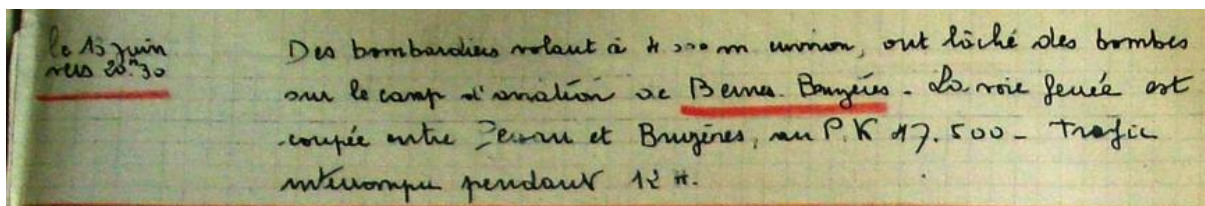 le 13 juin
vers 20.h30
Des bombardiers volant à 4 000 m environ, ont lâché des bombes
sur le camp d'aviation de Bernes-Bruyères - La voie ferrée est
coupée entre Persan et Bruyères, au P.K 47.500 - Trafic
interrompu pendant 12 H.